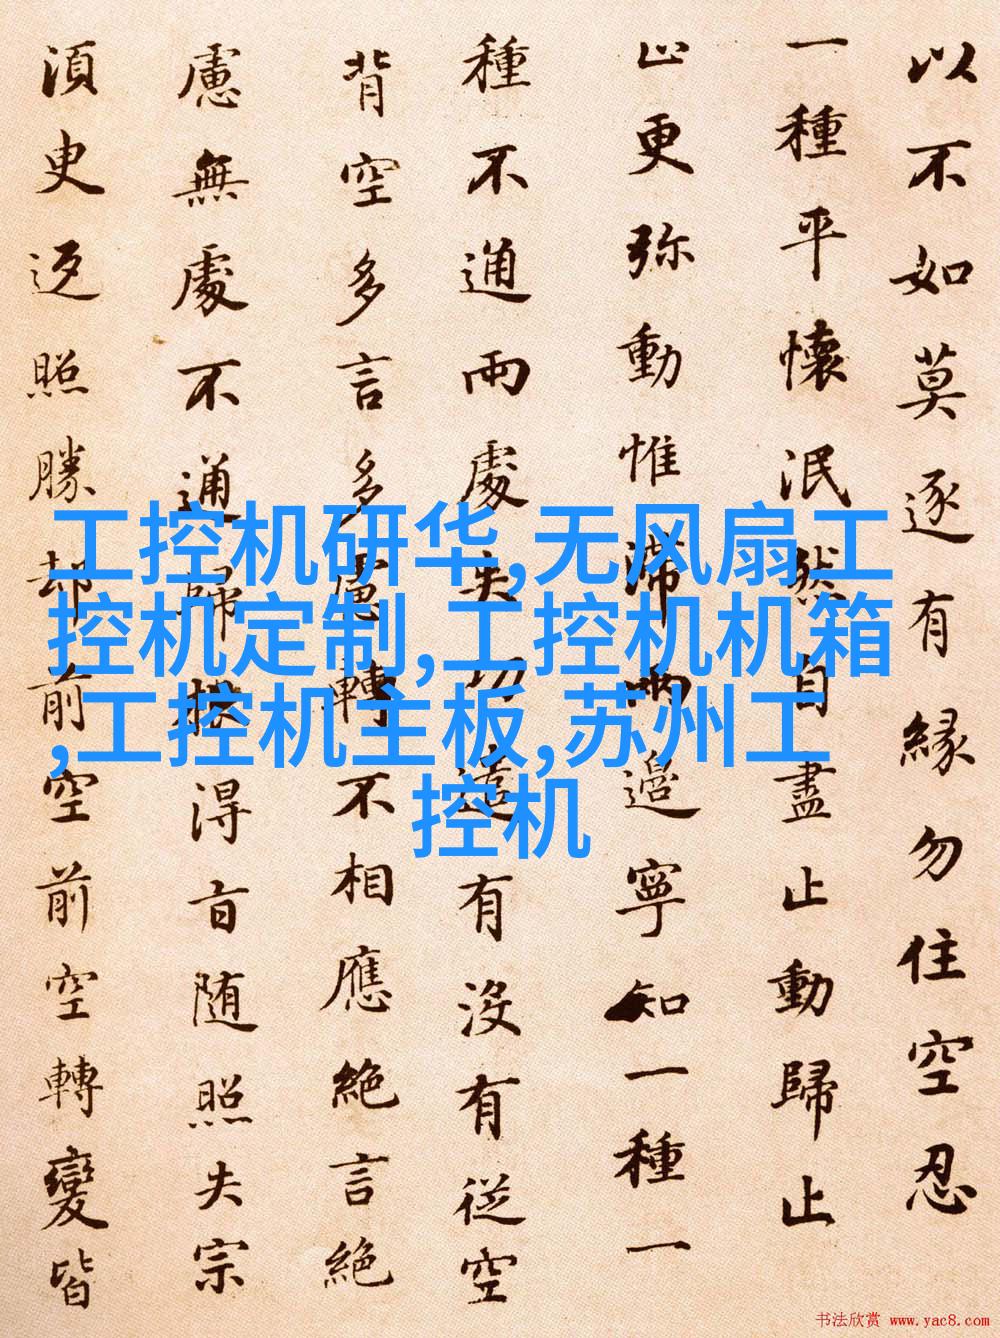 以不如莫逐有緣勿住空忍
一種平懷泯然自盡止動歸止
止更弥動惟滞兩邊寧知一種一
種不通兩處失功遣有没有從空
背空多言多慮轉不相應絶言絶
慮無處不通歸根得旨随照失宗
須臾返照勝却前空前空轉變皆
工控机研华,无风扇工
控机定制,工控机机箱
,工控机主板,苏州工
控机
书法欣赏 www.yac8.com